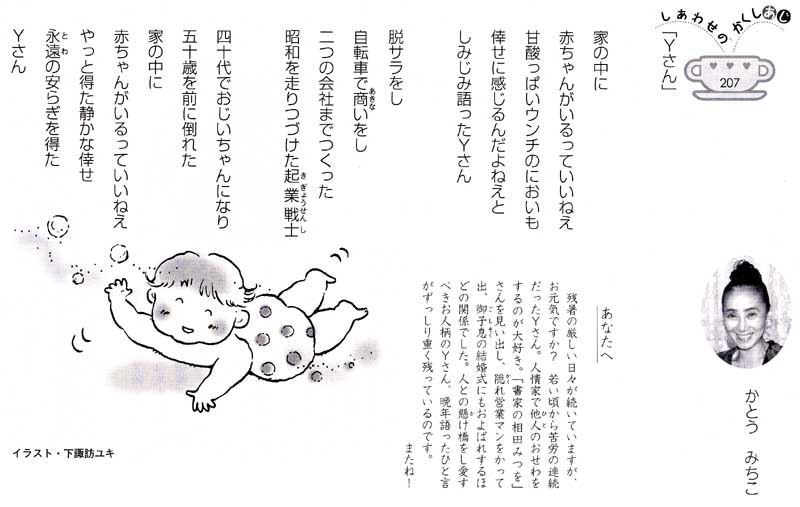 しあわせのかくしあじ
207
「Yさん」
かとう みちこ
家の中に
赤ちゃんがいるっていいねえ
甘酸っぱいウンチのにおいも
倖せに感じるんだよねえと
しみじみ語ったYさん
脱サラをし
自転車で商いをし
二つの会社までつくった
昭和を走りつづけた起業戦士
四十代でおじいちゃんになり
五十歳を前に倒れた
家の中に
赤ちゃんがいるっていいねえ
やっと得た静かな倖せ
永遠の安らぎを得た
Yさん
あなたへ
残暑の厳しい日々が続いていますが、
お元気ですか? 若い頃から苦労の連続
だったYさん。人情家で他人のおせわを
するのが大好き。「書家の相田みつを」
さんを見い出し、隠れ営業マンをかって
出、御子息の結婚式にもおよばれするほ
どの関係でした。人との懸け橋をし愛す
べきお人柄のYさん、晩年語ったひと言
がずっしり重く残っているのです。
またね!
イラスト・下諏訪ユキ